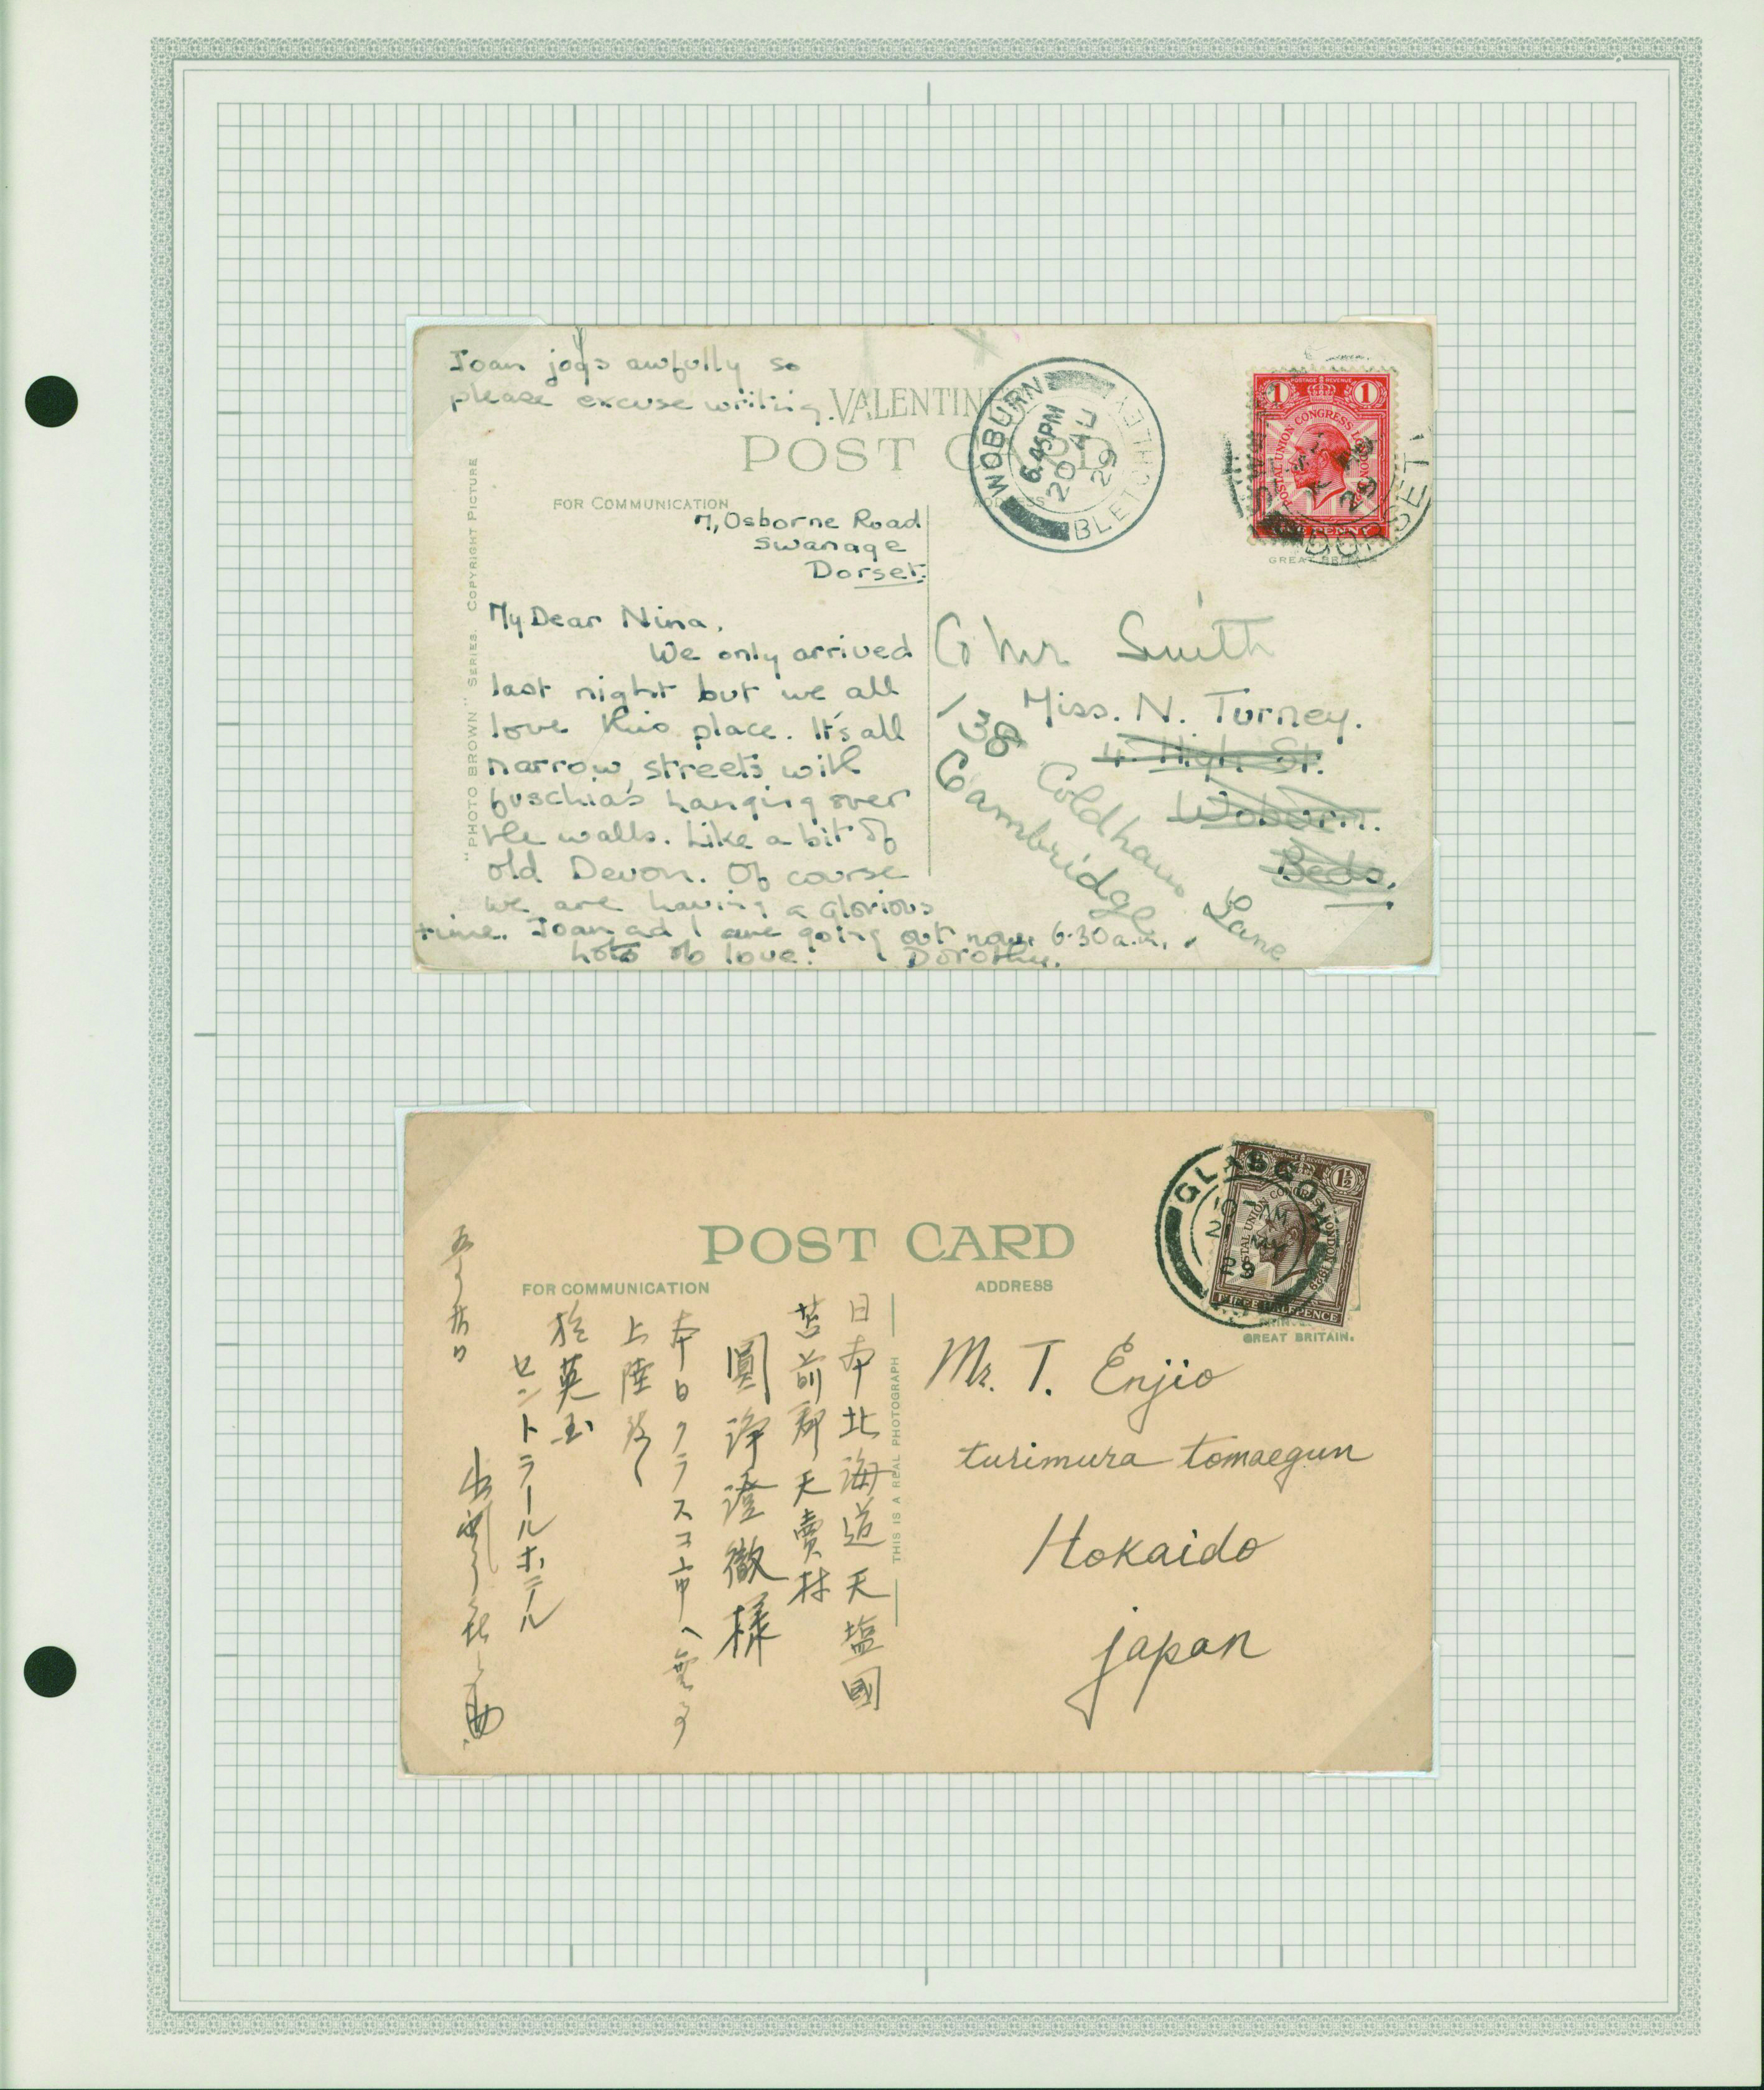 Joan jogs awfully so
please excuse writing.
VALENTIN
POST C D
FOR COMMUNICATION
7, Osborne Road
Swanage
Dorset.
My Dear Nina,
We only arrived
last night but we all
love this place. It's all
narrow streets with
fuschia's hanging over
the walls. Like a bit of
old Devon. Of course
we are having a glorious
time. Joan ad I are going out now, 6.30 a.m.
Lots of love. Dorothy.
"PHOTO BROWN" SERIES. COPYRIGHT PICTURE
WOBURN
BLETCHLEY
6.45PM
20 AU
29
1 1
POSTAGE REVENUE
POSTAL UNION CONGRESS LONDON 1929
ONE PENNY
DORSET
GREAT BRITAIN
C/o Mr Smith
Miss. N. Turney.
4. High St.
Woburn.
Beds.
138 Coldhams Lane
Cambridge
POST CARD
FOR COMMUNICATION
ADDRESS
THIS IS A REAL PHOTOGRAPH
GLASGOW
MY
29
POSTAGE REVENUE
1½
POSTAL UNION CONGRESS LONDON 1929
HALFPENCE
GREAT BRITAIN.
Mr. T. Enjio
turimura tomaegun
Hokaido
japan
日本北海道天塩國
苫前郡天賣村
圓浄澄徹様
本日クラスコ市ヘ
上陸
於英国
セントラールホテール